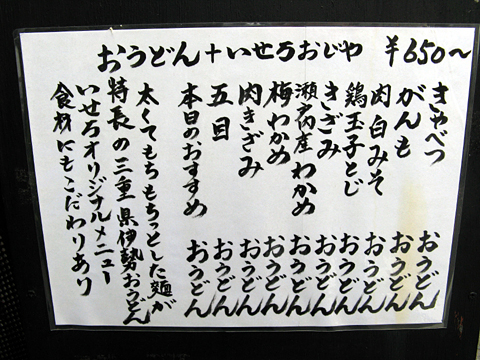 おうどん+いせろおじや ¥650〜
きゃべつ おうどん
がんも おうどん
肉白みそ おうどん
鶏玉子とじ おうどん
きざみ おうどん
瀬戸内産わかめ おうどん
梅わかめ おうどん
肉きざみ おうどん
五目 おうどん
本日のおすすめ おうどん
太くてもちもちっとした麺が
特長の三重県伊勢おうどん
いせろオリジナルメニュー
食材にもこだわりあり